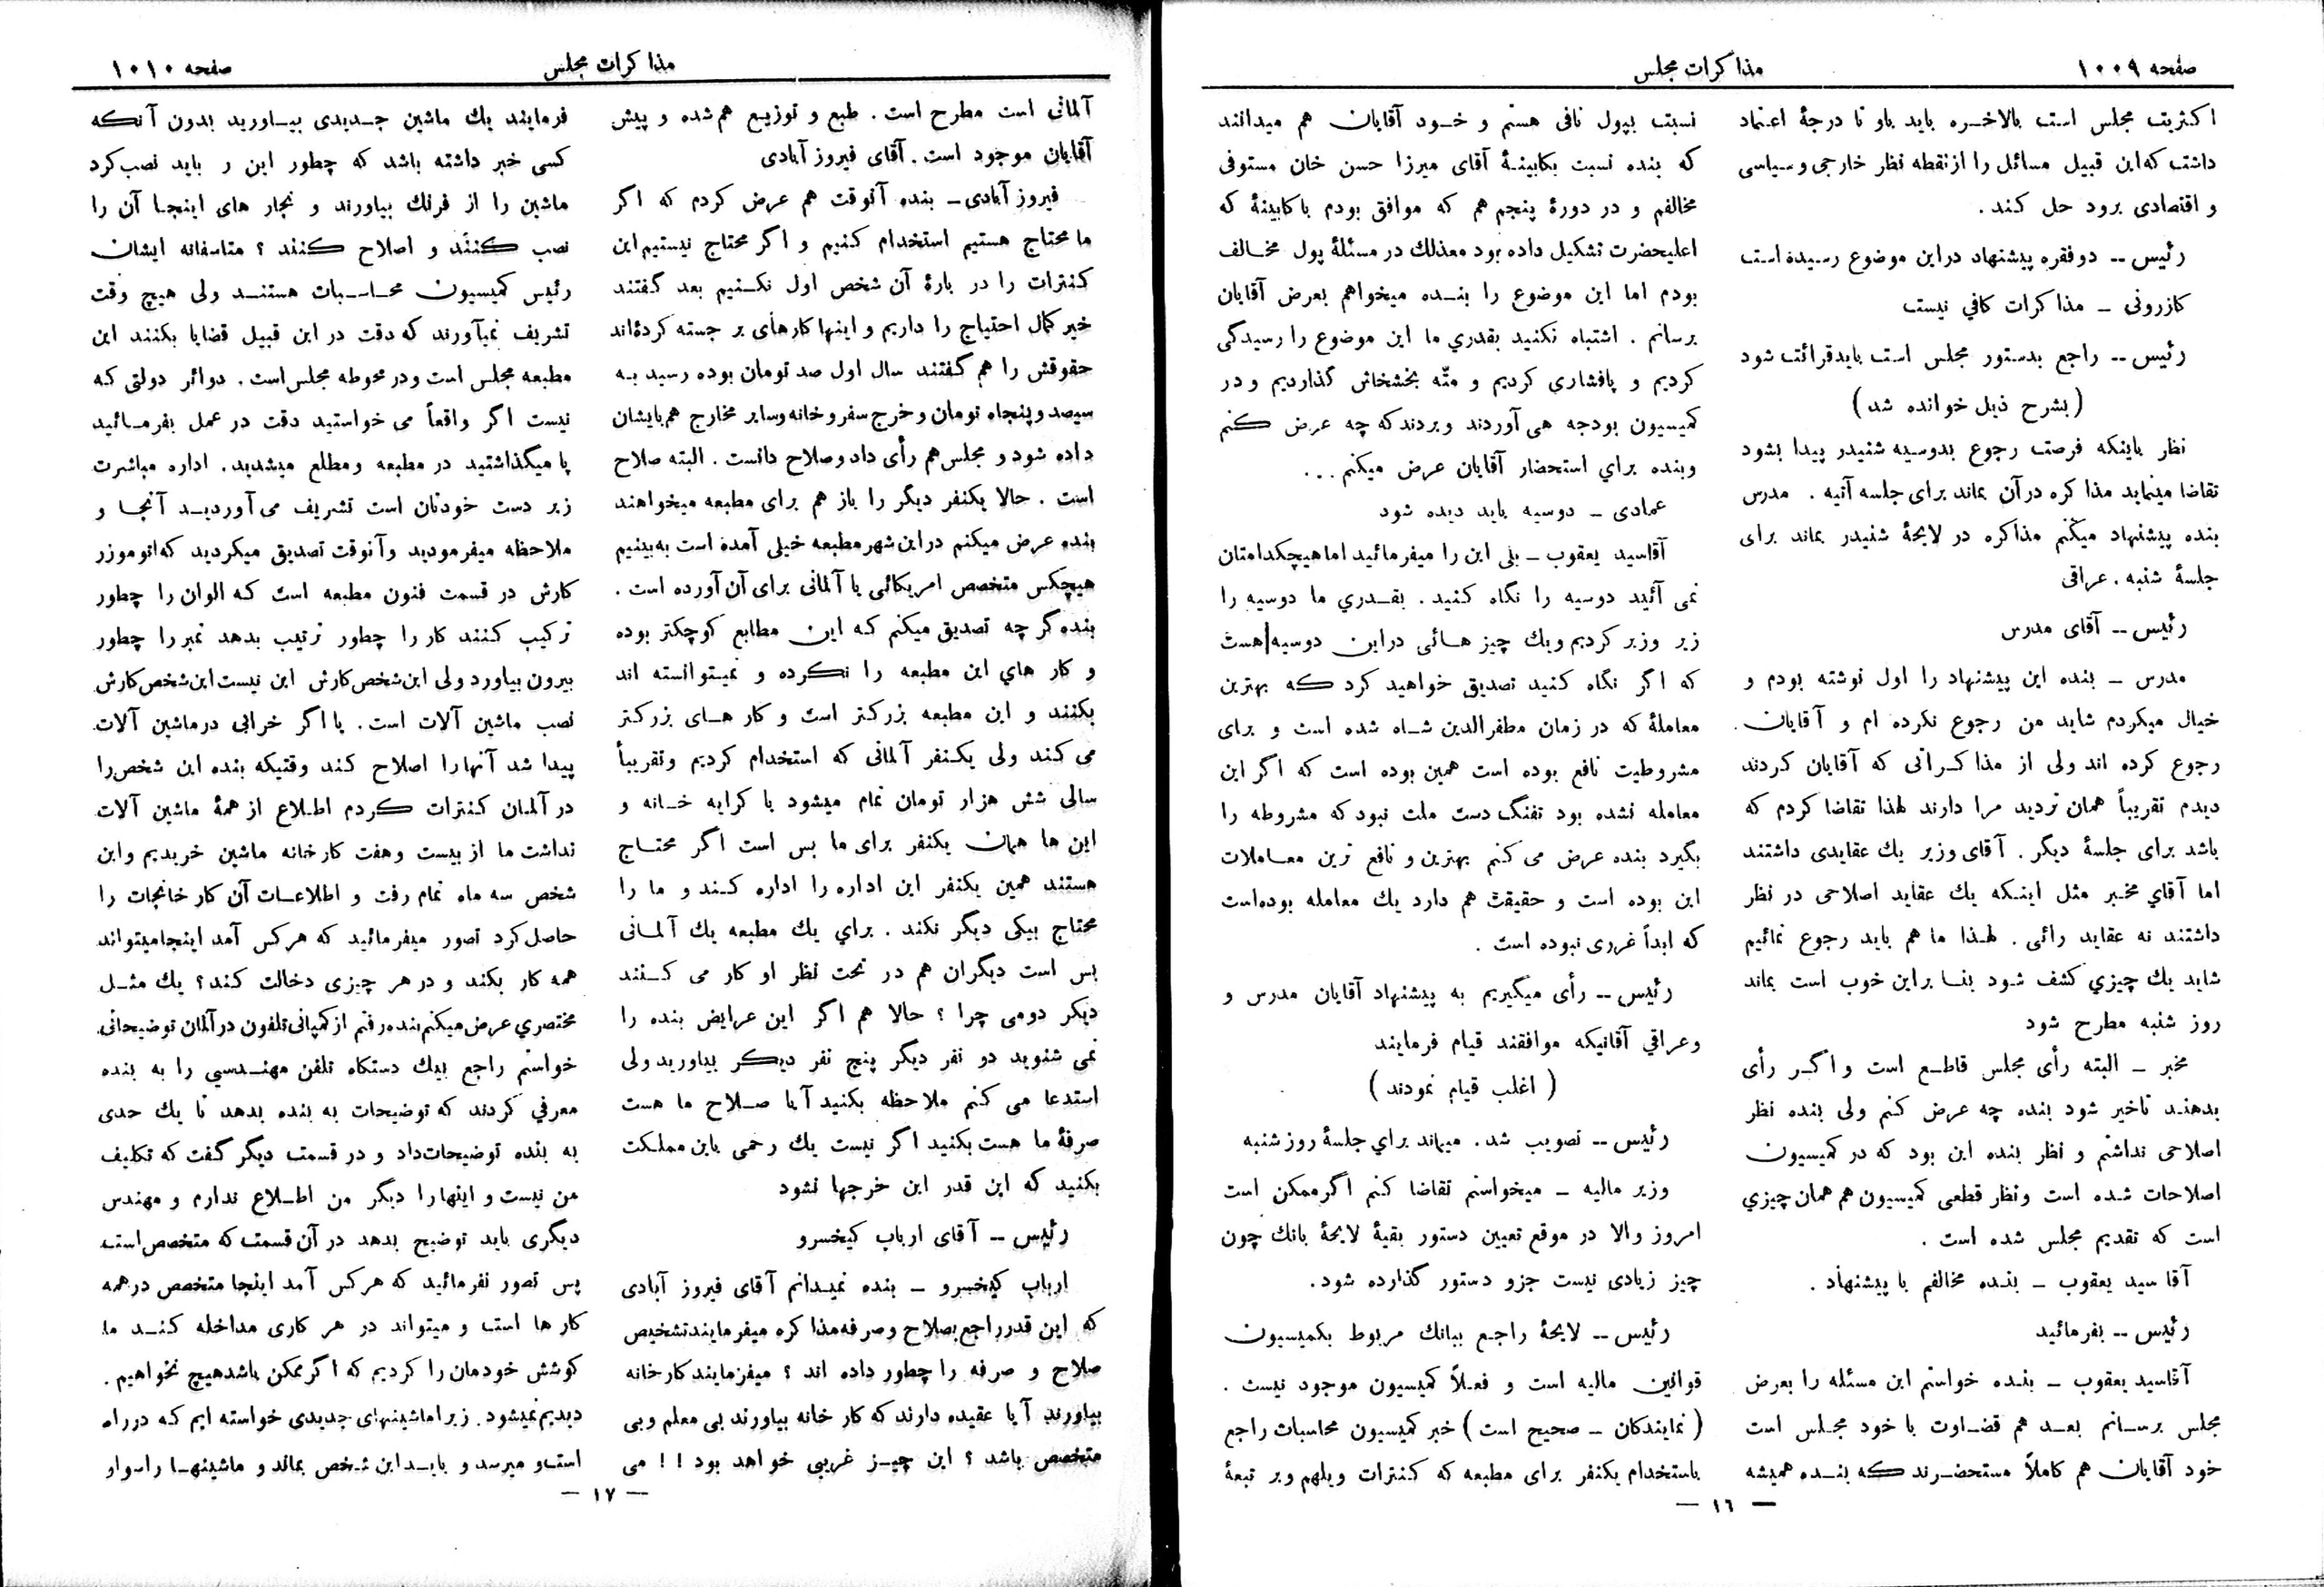 صفحه ۱۰۰۹
مذاکرات مجلس
اکثریت مجلس است بالاخره باید باو تا درجهٔ اعتماد
داشت که این قبیل مسائل را از نقطه نظر خارجی و سیاسی
و اقتصادی برود حل کند .
رئیس -- دو فقره پیشنهاد در این موضوع رسیده است
کازرونی - مذاکرات کافي نیست
رئیس -- راجع بدستور مجلس است باید قرائت شود
( بشرح ذیل خوانده شد )
نظر باینکه فرصت رجوع بدوسیه شنیدر پیدا بشود
تقاضا مینماید مذاکره در آن بماند برای جلسه آتیه . مدرس
بنده پیشنهاد میکنم مذاکره در لایحهٔ شنیدر بماند برای
جلسهٔ شنبه . عراقی
رئیس -- آقای مدرس
مدرس - بنده این پیشنهاد را اول نوشته بودم و
خیال میکردم شاید من رجوع نکرده ام و آقایان .
رجوع کرده اند ولی از مذاکراتی که آقایان کردند
دیدم تقریباً همان تردید مرا دارند لهذا تقاضا کردم که
باشد برای جلسهٔ دیگر . آقای وزیر یك عقایدی داشتند
اما آقاي مخبر مثل اینکه یك عقاید اصلاحی در نظر
داشتند نه عقاید رائی . لهذا ما هم باید رجوع نمائیم
شاید یك چیزي کشف شود بنا براین خوب است بماند
روز شنبه مطرح شود
مخبر - البته رأی مجلس قاطع است و اگر رأی
بدهند تاخیر شود بنده چه عرض کنم ولی بنده نظر
اصلاحی نداشتم و نظر بنده این بود که در کمیسیون
اصلاحات شده است ونظر قطعی کمیسیون هم همان چیزي
است که تقدیم مجلس شده است .
آقا سید یعقوب - بنده مخالفم با پیشنهاد .
رئیس -- بفرمائید
آقاسید یعقوب - بنده خواستم این مسئله را بعرض
مجلس برسانم بعد هم قضاوت با خود مجلس است
خود آقایان هم کاملاً مستحضرند که بنده همیشه
نسبت بپول نافی هستم و خود آقایان هم میدانند
که بنده نسبت بکابینهٔ آقای میرزا حسن خان مستوفی
مخالفم و در دورهٔ پنجم هم که موافق بودم با کابینهٔ که
اعلیحضرت تشکیل داده بود معذلك در مسئلهٔ پول مخالف
بودم اما این موضوع را بنده میخواهم بعرض آقایان
برسانم . اشتباه نکنید بقدري ما این موضوع را رسیدگی
کردیم و پافشاری کردیم و متّه بخشخاش گذاردیم و در
کمیسیون بودجه هی آوردند و بردند که چه عرض کنم
وبنده براي استحضار آقایان عرض میکنم ...
عمادی - دوسیه باید دیده شود
آقاسید یعقوب - بلی این را میفرمائید اما هیچکدامتان
نمی آئید دوسیه را نگاه کنید . بقدري ما دوسیه را
زیر وزبر کردیم و یك چیز هائی در این دوسیه هست
که اگر نگاه کنید تصدیق خواهید کرد که بهترین
معاملهٔ که در زمان مظفرالدین شاه شده است و برای
مشروطیت نافع بوده است همین بوده است که اگر این
معامله نشده بود تفنگ دست ملت نبود که مشروطه را
بگیرد بنده عرض می کنم بهترین و نافع ترین معاملات
این بوده است و حقیقت هم دارد یك معامله بوده است
که ابداً غرری نبوده است .
رئیس -- رأی میگیریم به پیشنهاد آقایان مدرس و
وعراقي آقانیکه موافقند قیام فرمایند
( اغلب قیام نمودند )
رئیس -- تصویب شد . میماند براي جلسهٔ روز شنبه
وزیر مالیه - میخواستم تقاضا کنم اگر ممکن است
امروز والا در موقع تعیین دستور بقیهٔ لایحهٔ بانك چون
چیز زیادی نیست جزو دستور گذارده شود .
رئیس -- لایحهٔ راجع ببانك مربوط بکمیسیون
قوانین مالیه است و فعلاً کمیسیون موجود نیست .
( نمایندکان - صحیح است ) خبر کمیسیون محاسبات راجع
باستخدام یکنفر برای مطبعه که کنترات ویلهم وبر تبعهٔ
— ۱٦ —
مذاکرات مجلس
صفحه ۱۰۱۰
آلمانی است مطرح است . طبع و توزیع هم شده و پیش
آقایان موجود است . آقای فیروز آبادی
فیروز آبادی - بنده آنوقت هم عرض کردم که اگر
ما محتاج هستیم استخدام کنیم و اگر محتاج نیستیم این
کنترات را در بارهٔ آن شخص اول نکنیم بعد گفتند
خیر کمال احتیاج را داریم و اینها کارهای بر جسته کرده‌اند
حقوقش را هم گفتند سال اول صد تومان بوده رسید به
سیصد و پنجاه تومان و خرج سفر و خانه و سایر مخارج هم بایشان
داده شود و مجلس هم رأی داد و صلاح دانست . البته صلاح
است . حالا یکنفر دیگر را باز هم برای مطبعه میخواهند
بنده عرض میکنم در این شهر مطبعه خیلی آمده است به بینیم
هیچکس متخصص امریکائی یا آلمانی برای آن آورده است .
بنده گر چه تصدیق میکنم که این مطابع کوچکتر بوده
و کار هاي این مطبعه را نکرده و نمیتوانسته اند
بکنند و این مطبعه بزرکتر است و کار های بزرکتر
می کند ولی یکنفر آلمانی که استخدام کردیم وتقریباً
سالی شش هزار تومان تمام میشود با کرایه خانه و
این ها همان یکنفر برای ما بس است اگر محتاج
هستند همین یکنفر این اداره را اداره کند و ما را
محتاج بیکی دیگر نکند . براي یك مطبعه یك آلمانی
بس است دیگران هم در تحت نظر او کار می کنند
دیکر دومی چرا ؟ حالا هم اگر این عرایض بنده را
نمی شنوید دو نفر دیگر پنج نفر دیکر بیاورید ولی
استدعا می کنم ملاحظه بکنید آیا صلاح ما هست
صرفهٔ ما هست بکنید اگر نیست یك رحمی باین مملکت
بکنید که این قدر این خرجها نشود
رئیس -- آقای ارباب کیخسرو
ارباب کیخسرو - بنده نمیدانم آقای فیروز آبادی
که این قدر راجع بصلاح و صرفه مذاکره میفرمایند تشخیص
صلاح و صرفه را چطور داده اند ؟ میفرمایند کارخانه
بیاورند آیا عقیده دارند که کار خانه بیاورند بی معلم و بی
متخصص باشد ؟ این چیز غریبی خواهد بود ! ! می
فرمایند یك ماشین جدیدی بیاورید بدون آنکه
کسی خبر داشته باشد که چطور این ر باید نصب کرد
ماشین را از فرنك بیاورند و نجار های اینجا آن را
نصب کنند و اصلاح کنند ؟ متاسفانه ایشان
رئیس کمیسیون محاسبات هستند ولی هیچ وقت
تشریف نمیآورند که دقت در این قبیل قضایا بکنند این
مطبعه مجلس است و در محوطه مجلس است . دوائر دولتی که
نیست اگر واقعاً می خواستید دقت در عمل بفرمائید
پا میگذاشتید در مطبعه و مطلع میشدید . اداره مباشرت
زیر دست خودتان است تشریف می آوردید آنجا و
ملاحظه میفرمودید و آنوقت تصدیق میکردید که اتوموزر
کارش در قسمت فنون مطبعه است که الوان را چطور
ترکیب کنند کار را چطور ترتیب بدهد نمبر را چطور
بیرون بیاورد ولی این شخص کارش این نیست این شخص کارش
نصب ماشین آلات است . یا اگر خرابی در ماشین آلات
پیدا شد آنها را اصلاح کند وقتیکه بنده این شخص را
در آلمان کنترات کردم اطلاع از همهٔ ماشین آلات
نداشت ما از بیست و هفت کارخانه ماشین خریدیم و این
شخص سه ماه تمام رفت و اطلاعات آن کار خانجات را
حاصل کرد تصور میفرمائید که هر کس آمد اینجا میتواند
همه کار بکند و در هر چیزی دخالت کند ؟ یك مثل
مختصري عرض میکنم بنده رفتم از کمپانی تلفون در آلمان توضیحاتی
خواستم راجع بیك دستکاه تلفن مهندسی را به بنده
معرفي کردند که توضیحات به بنده بدهد تا یك حدی
به بنده توضیحات داد و در قسمت دیگر گفت که تکلیف
من نیست و اینها را دیگر من اطلاع ندارم و مهندس
دیگری باید توضیح بدهد در آن قسمت که متخصص است
پس تصور نفرمائید که هر کس آمد اینجا متخصص در همه
کار ها است و میتواند در هر کاری مداخله کند ما
کوشش خودمان را کردیم که اگر ممکن باشد هیچ نخواهیم .
دیدیم نمیشود . زیرا ماشینهای جدیدی خواسته ایم که در راه
است و میرسد و باید این شخص بماند و ماشینها را سوار
— ۱۷ —